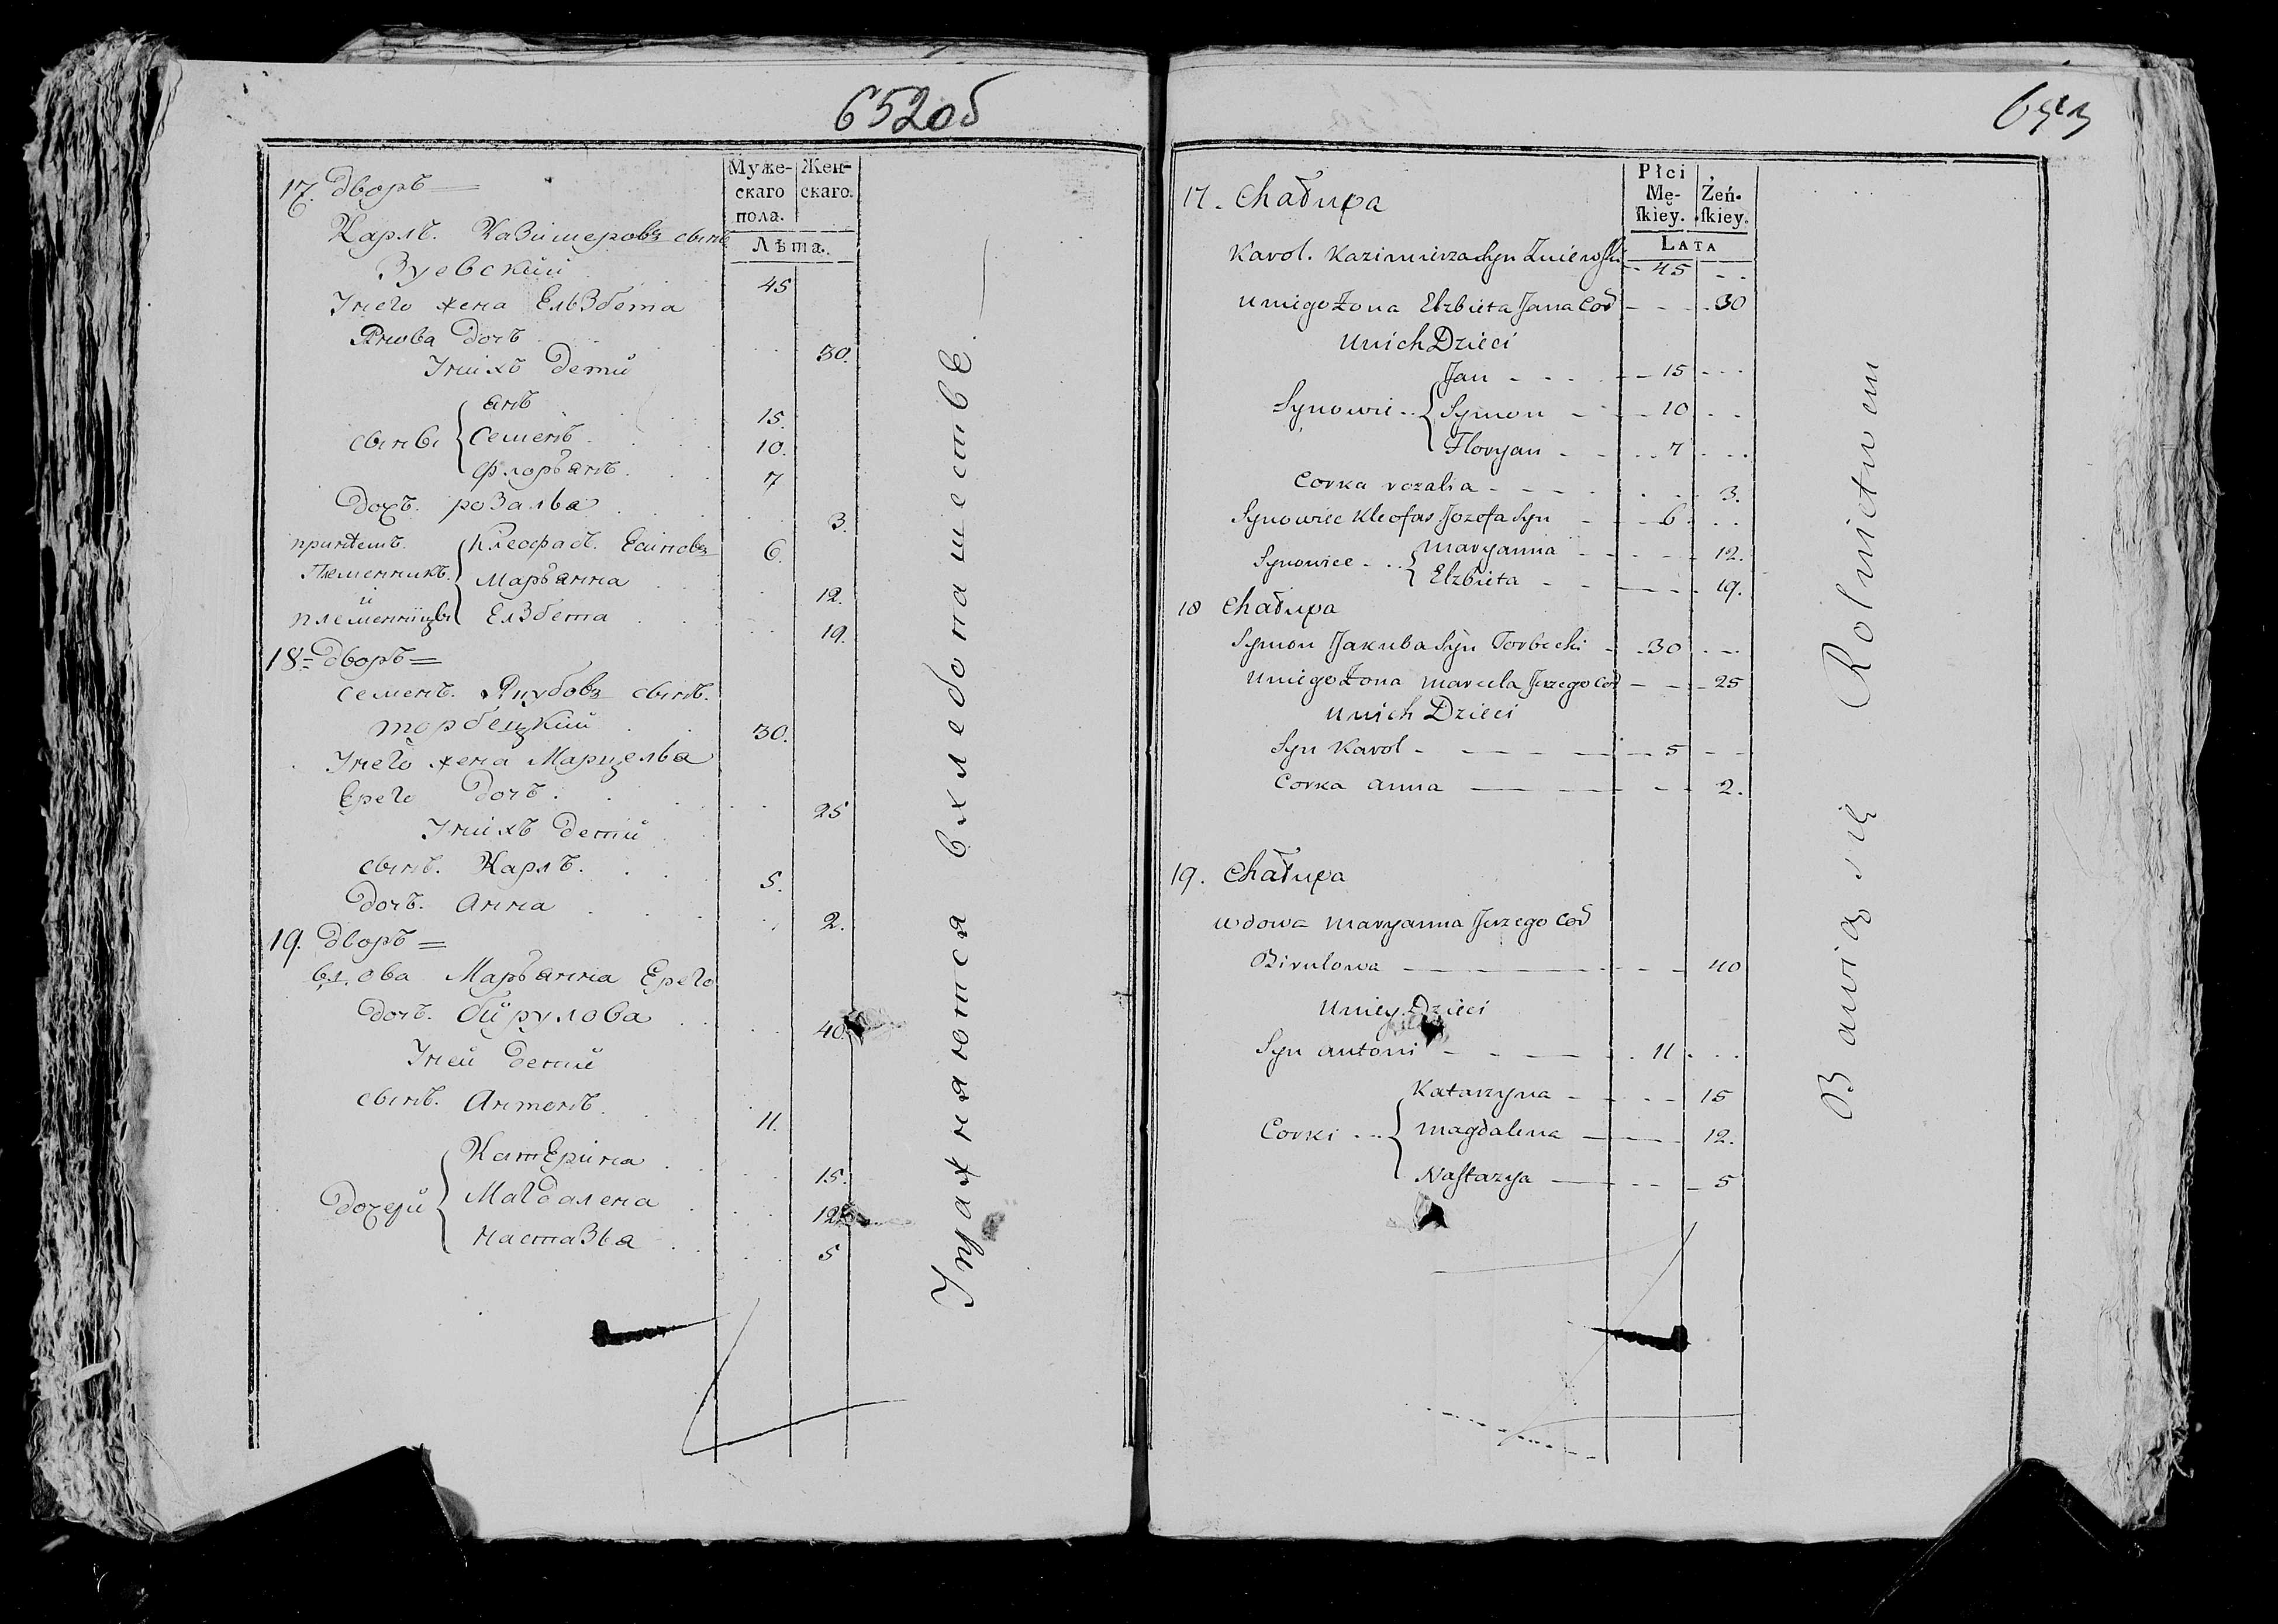 652об
Муже-
скаго
пола.
Жен-
скаго.
Лѣта.
17. Дворъ
Карлъ. Казимеровъ сынъ
Зуевский 45
Унего жена Ельзбета
Янова дочъ 30.
Унихъ дети
сыны
анъ 15.
Семенъ 10.
Флоръянъ 7
Дочъ. розалья 3.
принтемъ
Племенникъ
и
племенницы
Клеофасъ. 6.
Маръянна 12.
Елзбета 19.
18 Дворъ
семенъ. Якубовъ сынъ.
торбецкий 30.
Унего жена Марцелья
Ерего Дочъ. 25
Унихъ Дети
сынъ. Карлъ. 5.
Дочъ. Анна 2.
19. Дворъ
вдова Маръянна Ерего
дочъ. бирулова 40.
Уней Дети
сынъ. Антонъ. 11.
Дочери
Катерина 15.
Магдалена 12.
настазья 5
Упражняются вхлебопашестве.
653
Płci
Mę-
ſkiey.
Żeń-
ſkiey.
LATA
17. Chałupa
Karol. Kazimierza Syn Zuiewski 45
Uniego Żona Elzbieta Jana Cor 30
Unich Dzieci
Synowie
Jan 15
Symon 10
Floryan 7
Corka rozalia 3.
Synowiec Kleofas Jozefa Syn 6
Synowice
Maryanna 12.
Elzbieta 19.
18 Chałupa
Symon Jakuba Syn Torbecki 30
Uniego Żona Marcela Jerzego Cor 25
Unich Dzieci
Syn Karol 5
Corka anna 2.
19. Chałupa
Wdowa Maryanna Jerzego Cor
Birulowa 40
Uniey Dzieci
Syn antoni 11
Corki
Katarzyna 15
Magdalena 12.
Nastazya 5
Bawią się Rolnictwem